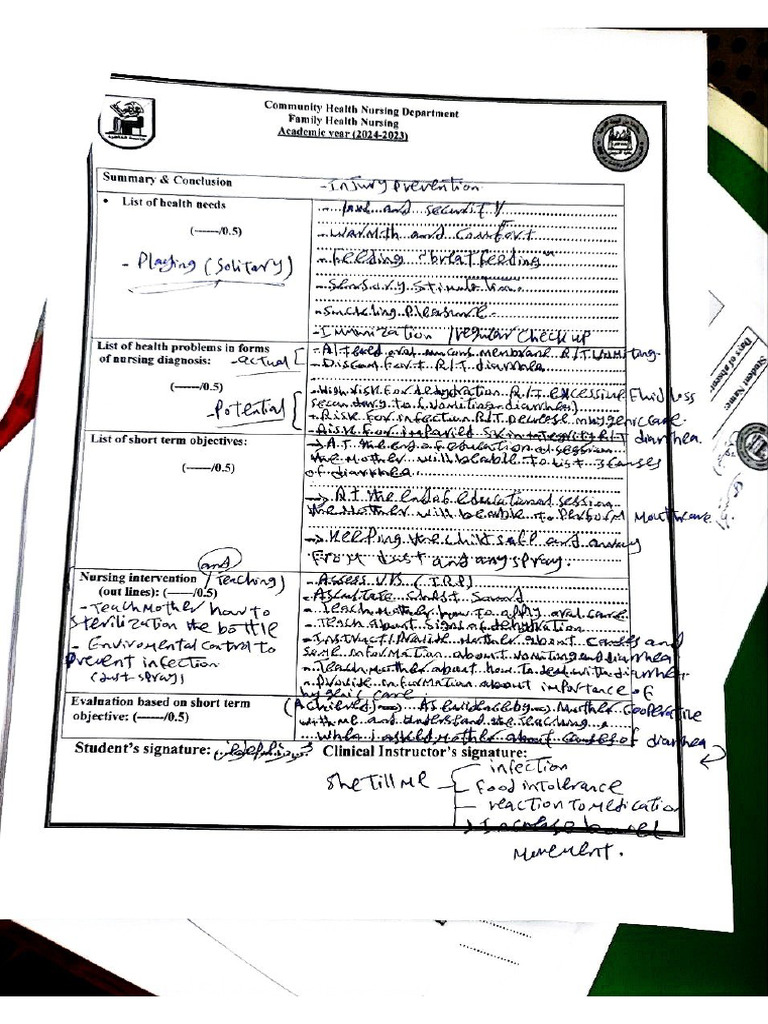 Community Health Nursing Department
Family Health Nursing
Academic year (2024-2023)
Summary & Conclusion
- Injury prevention
• List of health needs
(------/0.5)
- Playing (Solitary)
- love and security
- warmth and comfort
- Feeding "breat feeding"
- Sensory stimulation
- Suckling Pleasure
- Immunization / regular check up
List of health problems in forms
of nursing diagnosis: - actual [
(------/0.5)
- Potential
- Altered oral mucous membrane R/T vomiting
- Discomfort R/T diarrhea
- High risk for dehydration R/T excessive Fluid loss
secondary to (vomiting and diarrhea)
- Risk for infection R/T decrease in hygenic care
- Risk for impaired skin integrity R/T diarrhea.
List of short term objectives:
(------/0.5)
→ AT the end of education al session
the mother will be able to list 3 causes
of diarrhea
→ AT the end of educational session
the mother will be able to perform Mouth care.
→ Keeping the child safe and away
From dust and any spray.
Nursing intervention / and Teaching)
(out lines): (------/0.5)
- Teach Mother how to
sterilization the bottle
- Enviromental control to
prevent infection
(dust-spray)
- Assess V/S (T.R.P)
- Ascultate chest Sound
- Teach Mother how to apply oral care
- Teach about signs of dehydration
- Instruct/Provide Mother about causes and
some information about vomiting and diarrhea
- Teach Mother about how to deal with diarrhea
- Provide information about importance of
hygeic care
Evaluation based on short term
objective: (------/0.5)
(Achieved) → As evidence by → Mother cooperative
with me and understand the teaching
while i asked Mother about causes of diarrhea
Student's signature:
Clinical Instructor's signature:
She Till Me
- infection
- Food intolerance
- reaction To Medication
→ Increase bowel
Movement.
Student Name:
Days of absent: